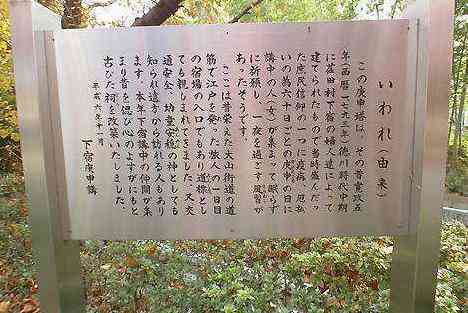 いわれ（由来）
この庚申塔は、その昔寛政五
年（西暦一七九三年）徳川時代中期
に荏田村下宿の婦人達によって
建てられたもので当時盛んだっ
た庶民信仰の一つに疫病、厄払
いの為六十日ごとの庚申の日に
講中の人（女）が集まって眠らず
に祈願し、一夜を過ごす風習が
あったそうです。
ここは昔栄えた大山街道の道
筋で江戸を発った旅人の一日目
の宿場の入口でもあり道標とし
ても親しまれてきました。又交
通安全、幼童安穏の神としても
知られ遠方から訪れる人もあり
ます。本年下宿講中の仲間が集
まり昔を偲び心のよすがにもと
古びた祠を改築いたしました。
平成六年十一月
下宿庚申講